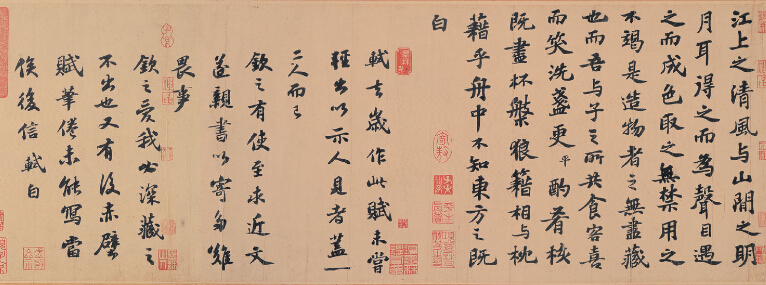 江上之清風与山間之明
月耳得之而為聲目遇
之而成色取之無禁用之
不竭是造物者之無盡藏
也而吾与子之所共食客喜
而笑洗盞更平酌肴核
既盡杯槃狼籍相与枕
藉乎舟中不知東方之既
白
軾去歲作此賦未嘗
輕出以示人見者蓋一
二人而已
欽之有使至求近文
遂親書以寄多難
畏事
欽之愛我必深藏之
不出也又有後赤壁
賦筆倦未能寫當
俟後信軾白